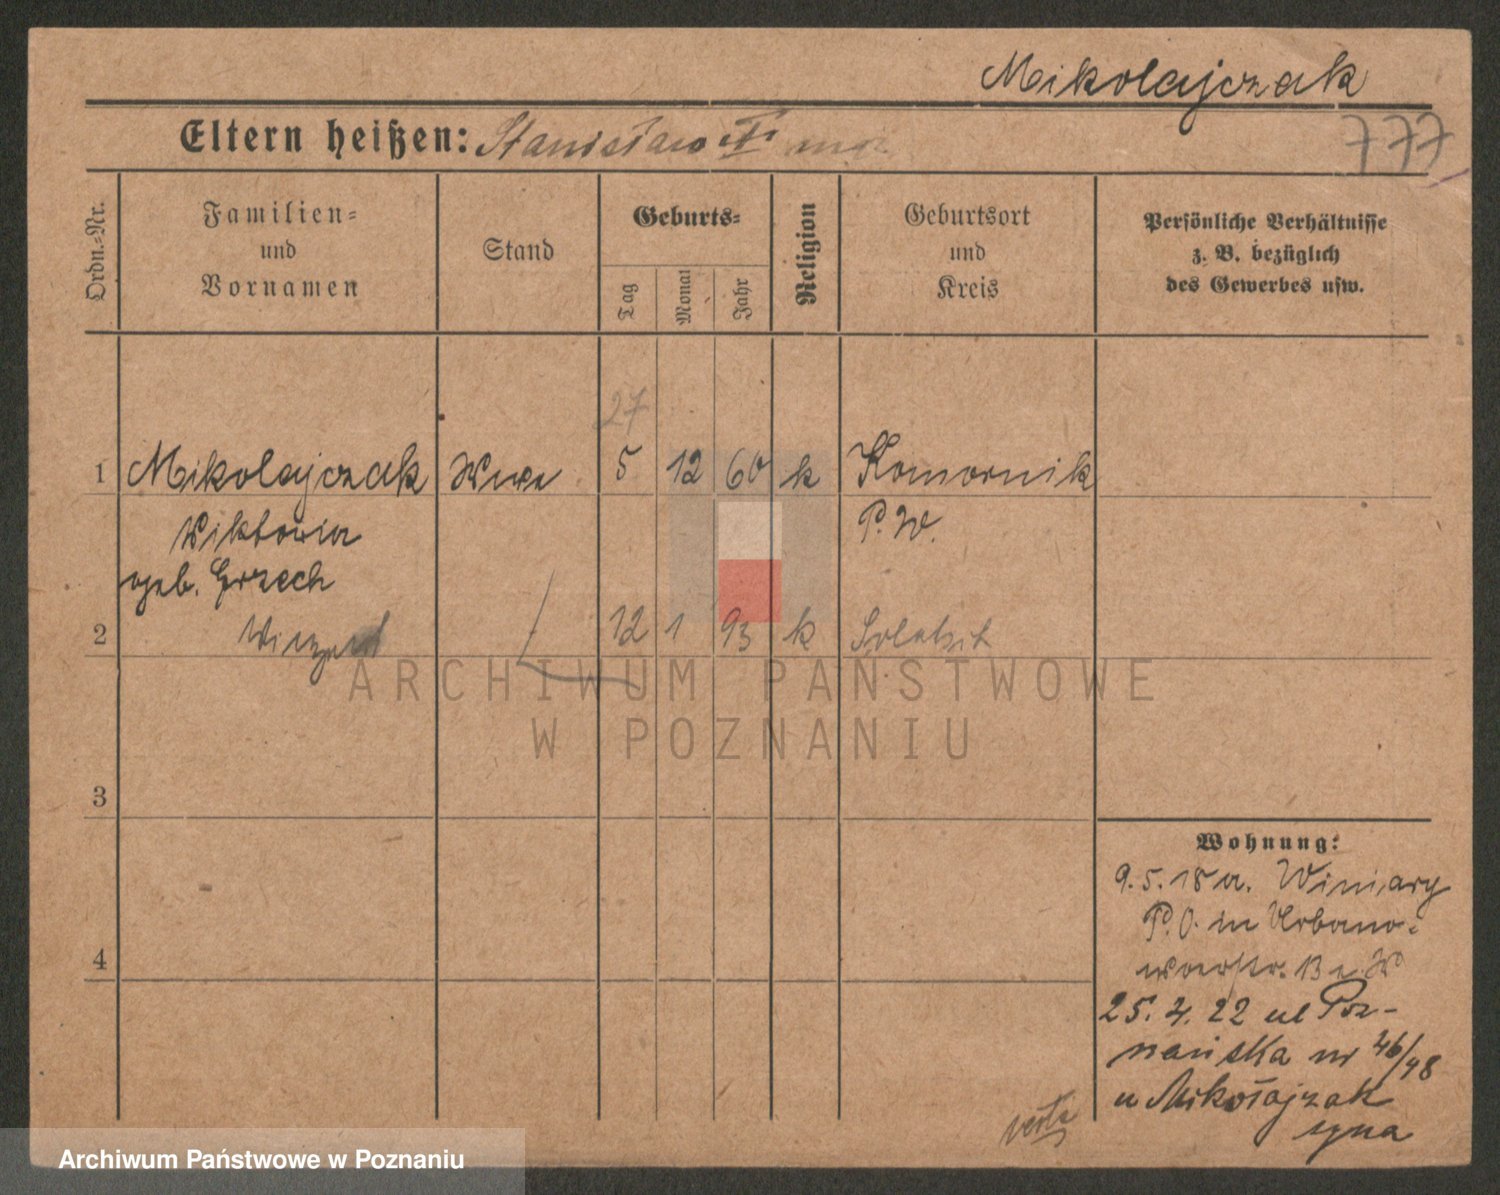 Mikolajczak
Eltern heißen: Stanisław
777
Ordn.-Nr.
Familien-
und
Vornamen
Stand
Geburts-
Tag
Monat
Jahr
Religion
Geburtsort
und
Kreis
Persönliche Verhältnisse
z. B. bezüglich
des Gewerbes usw.
27
1 Mikolajczak Wwe 5 12 60 k Komornik
Wiktoria P. W.
geb. Grzech
2 12 1 93 k
ARCHIWUM PAŃSTWOWE
W POZNANIU
3
4
Wohnung:
9.5.18 a. Winiary
P.O. in Urbano-
werstr. 13
25. 4. 22 ul Poz-
nańska nr 46/48
u Mikołajczak
syna
verte
Archiwum Państwowe w Poznaniu